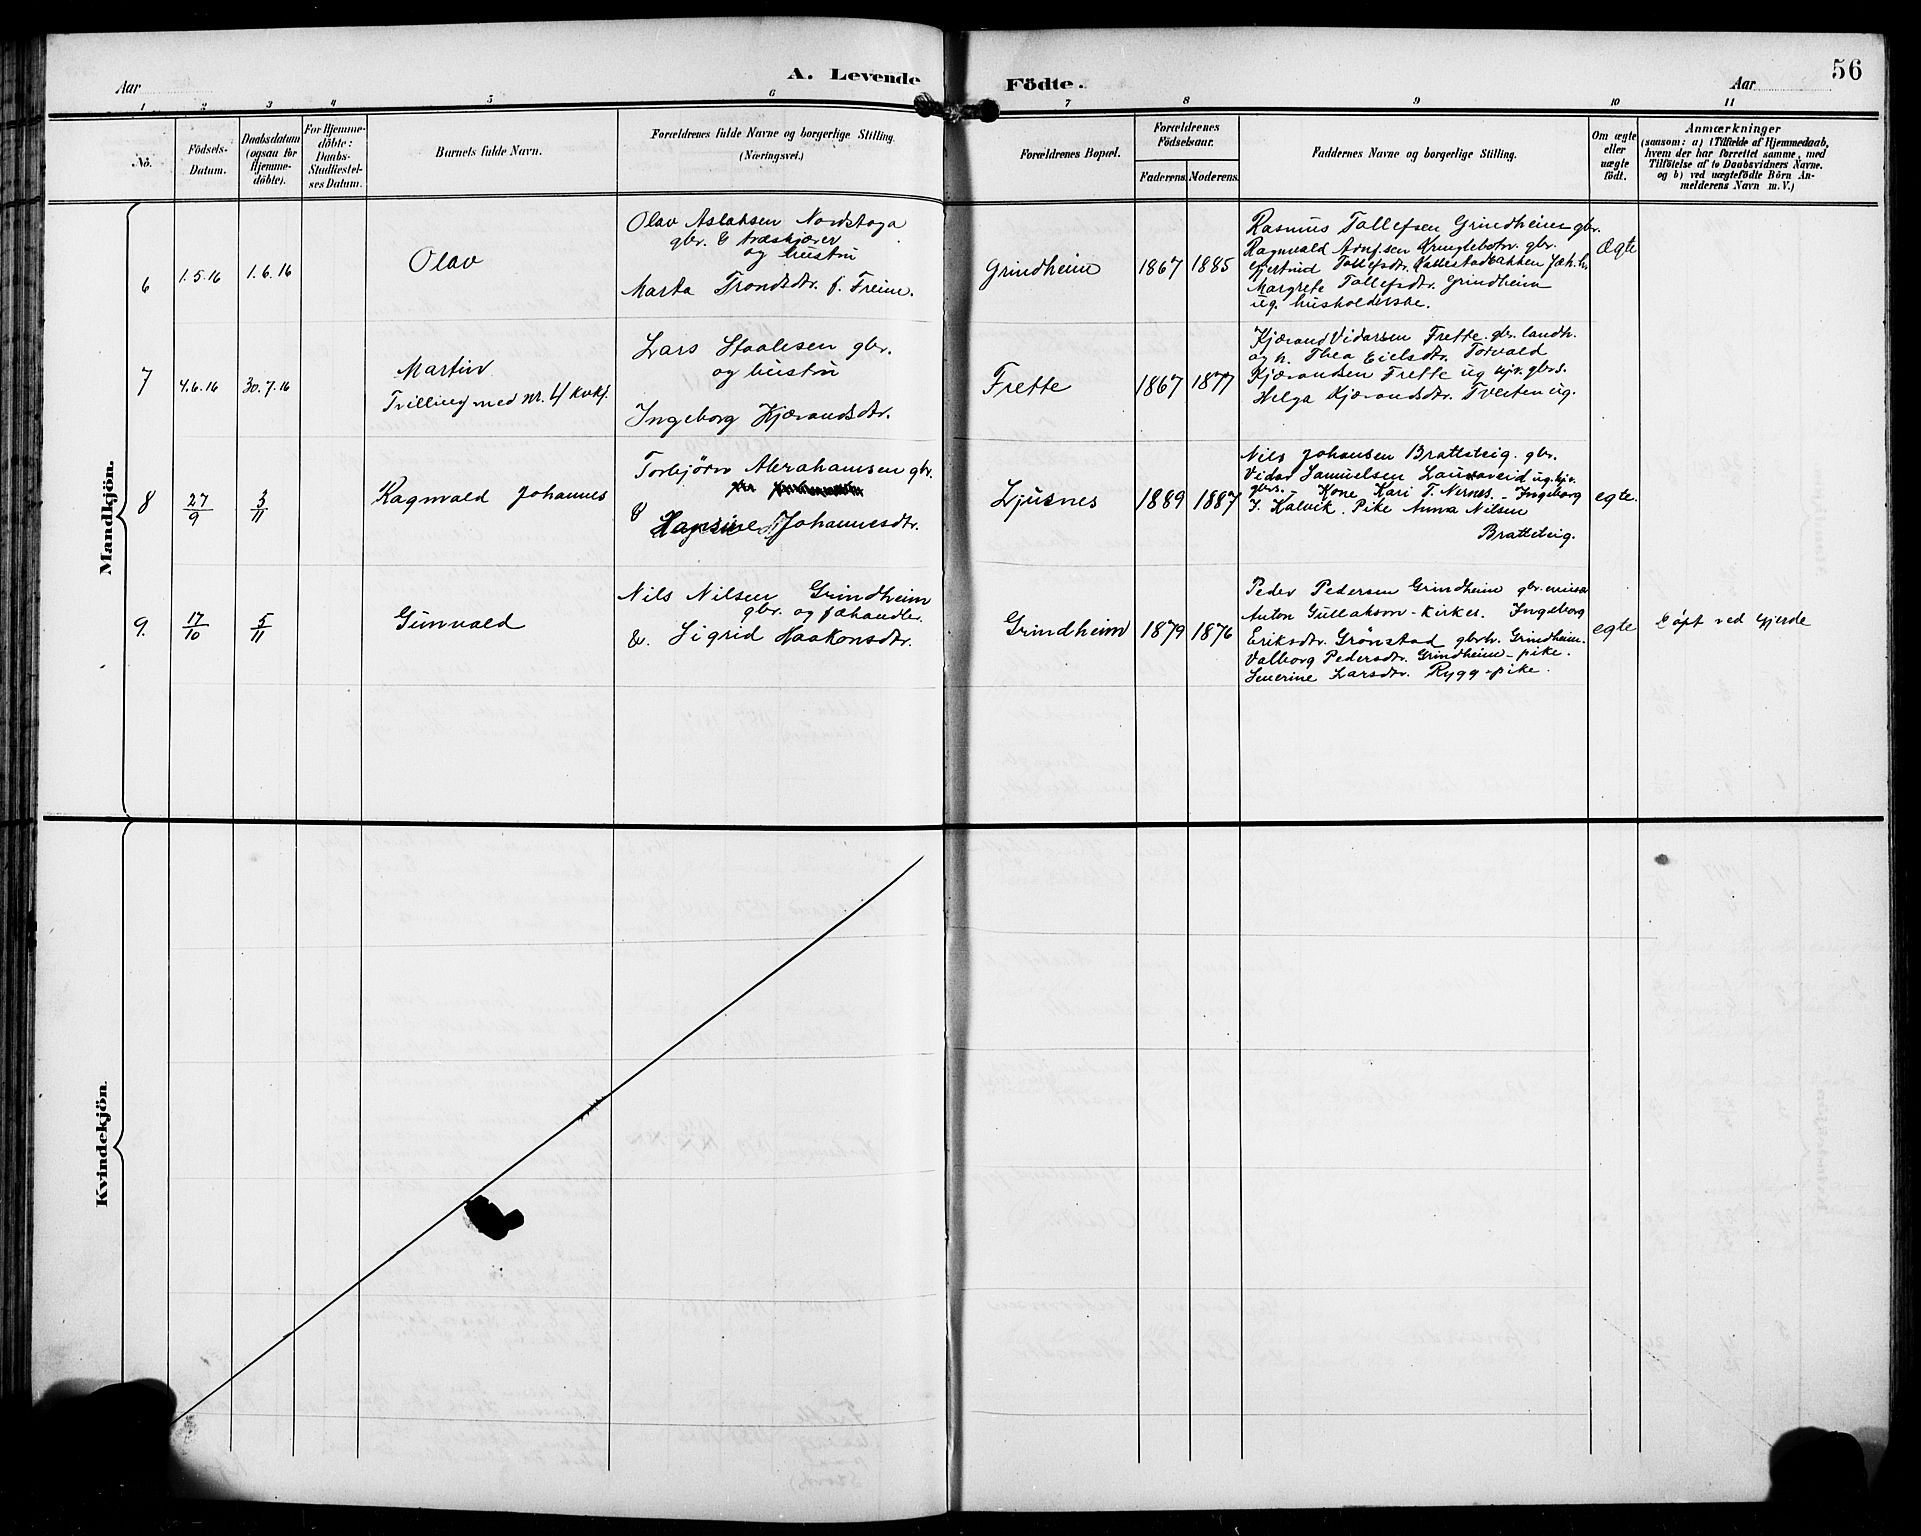 56
Aar
A. Levende
Födte.
Aar
1 2 3 4 5 6 7 8 9 10 11
No.
Födsels-
Datum.
Daabsdatum
(ogsaa for
Hjemme-
döbte).
For Hjemme-
döbte:
Daabs-
Stadfæstel-
ses Datum.
Barnets fulde Navn.
Forældrenes fulde Navne og borgerlige Stilling.
(Næringsvei.)
Forældrenes Bopæl.
Forældrenes
Födselsaar.
Faderens. Moderens.
Faddernes Navne og borgerlige Stilling.
Om ægte
eller
uægte
födt.
Anmærkninger
(saasom: a) i Tilfælde af Hjemmedaab,
hvem der har forrettet samme, med
Tilföielse af to Daabsvidners Navne.
og b) ved uægtefödte Börn An-
melderens Navn m. V.)
Mandkjön.
6
1.5.16
1.6.16
Olav
Olav Aslaksen Nordstoga
gbr. & træskjærer
og hustru
Marta Trondsdtr. f. Freim.
Grindheim
1867
1885
Rasmus Tollefsen Grindheim gbr.
Ragnvald Arnfsen Kringlebotn. gbr.
Gjertrud Tollefsdtr. Kallestadbakken
Margrete Tollefsdtr. Grindheim
ug. husholderske.
Ægte
7
4.6.16
30.7.16
Martin
Tvilling med nr. 4 kvkj.
Lars Staalesen gbr.
og hustru
Ingeborg Kjærandsdtr.
Frette
1867
1877
Kjærand Vidarsen Frette. gbr. landh.
og h. Thea Eielsdtr. Torvald
Kjærandsen Frette ug. hjv. gbrs.
Helga Kjærandsdtr. Tveiten ug.
8
27/9
3/11
Ragnvald Johannes
Torbjørn Abrahamsen gbr.
& Hansine Johannesdtr.
Ljusnes
1889
1887
Nils Johansen Bratteteig. gbr.
Vidar Samuelsen Lauvaveid ug. hjv.
gbrs. - Kone Kari T. Nernes - Ingeborg
J. Kalvik. Pike Anna Nilsen
Bratteteig.
egte.
9.
17/10
5/11
Gunvald
Nils Nilsen Grindheim
gbr. og fæhandler
& Sigrid Haakonsdtr.
Grindheim
1879
1876
Peder Pedersen Grindheim gbr.
Anton Gullakson - kirkes. Ingeborg
Eriksdtr. Grønstad gbrh. Grindheim.
Valborg Pedersdtr. Grindheim - pike.
Severine Larsdtr. Rygg - pike.
egte
Døpt ved Gjerde
Kvindekjön.